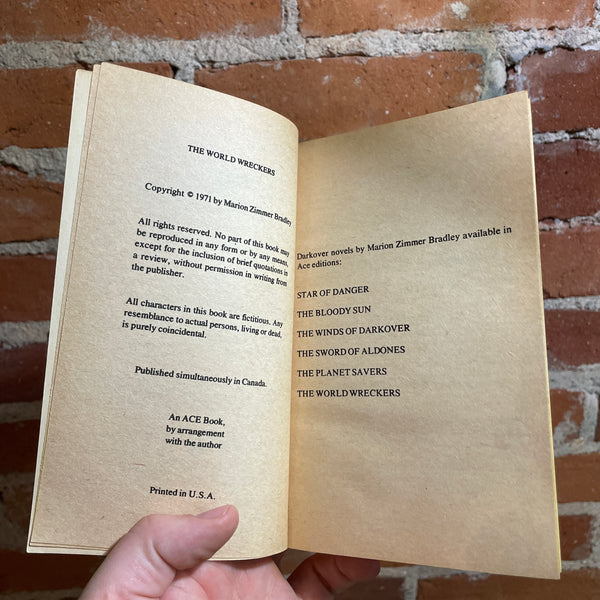 THE WORLD WRECKERS
Copyright © 1971 by Marion Zimmer Bradley
All rights reserved. No part of this book may
be reproduced in any form or by any means,
except for the inclusion of brief quotations in
a review, without permission in writing from
the publisher.
All characters in this book are fictitious. Any
resemblance to actual persons, living or dead,
is purely coincidental.
Published simultaneously in Canada.
An ACE Book,
by arrangement
with the author
Printed in U.S.A.
Darkover novels by Marion Zimmer Bradley available in
Ace editions:
STAR OF DANGER
THE BLOODY SUN
THE WINDS OF DARKOVER
THE SWORD OF ALDONES
THE PLANET SAVERS
THE WORLD WRECKERS